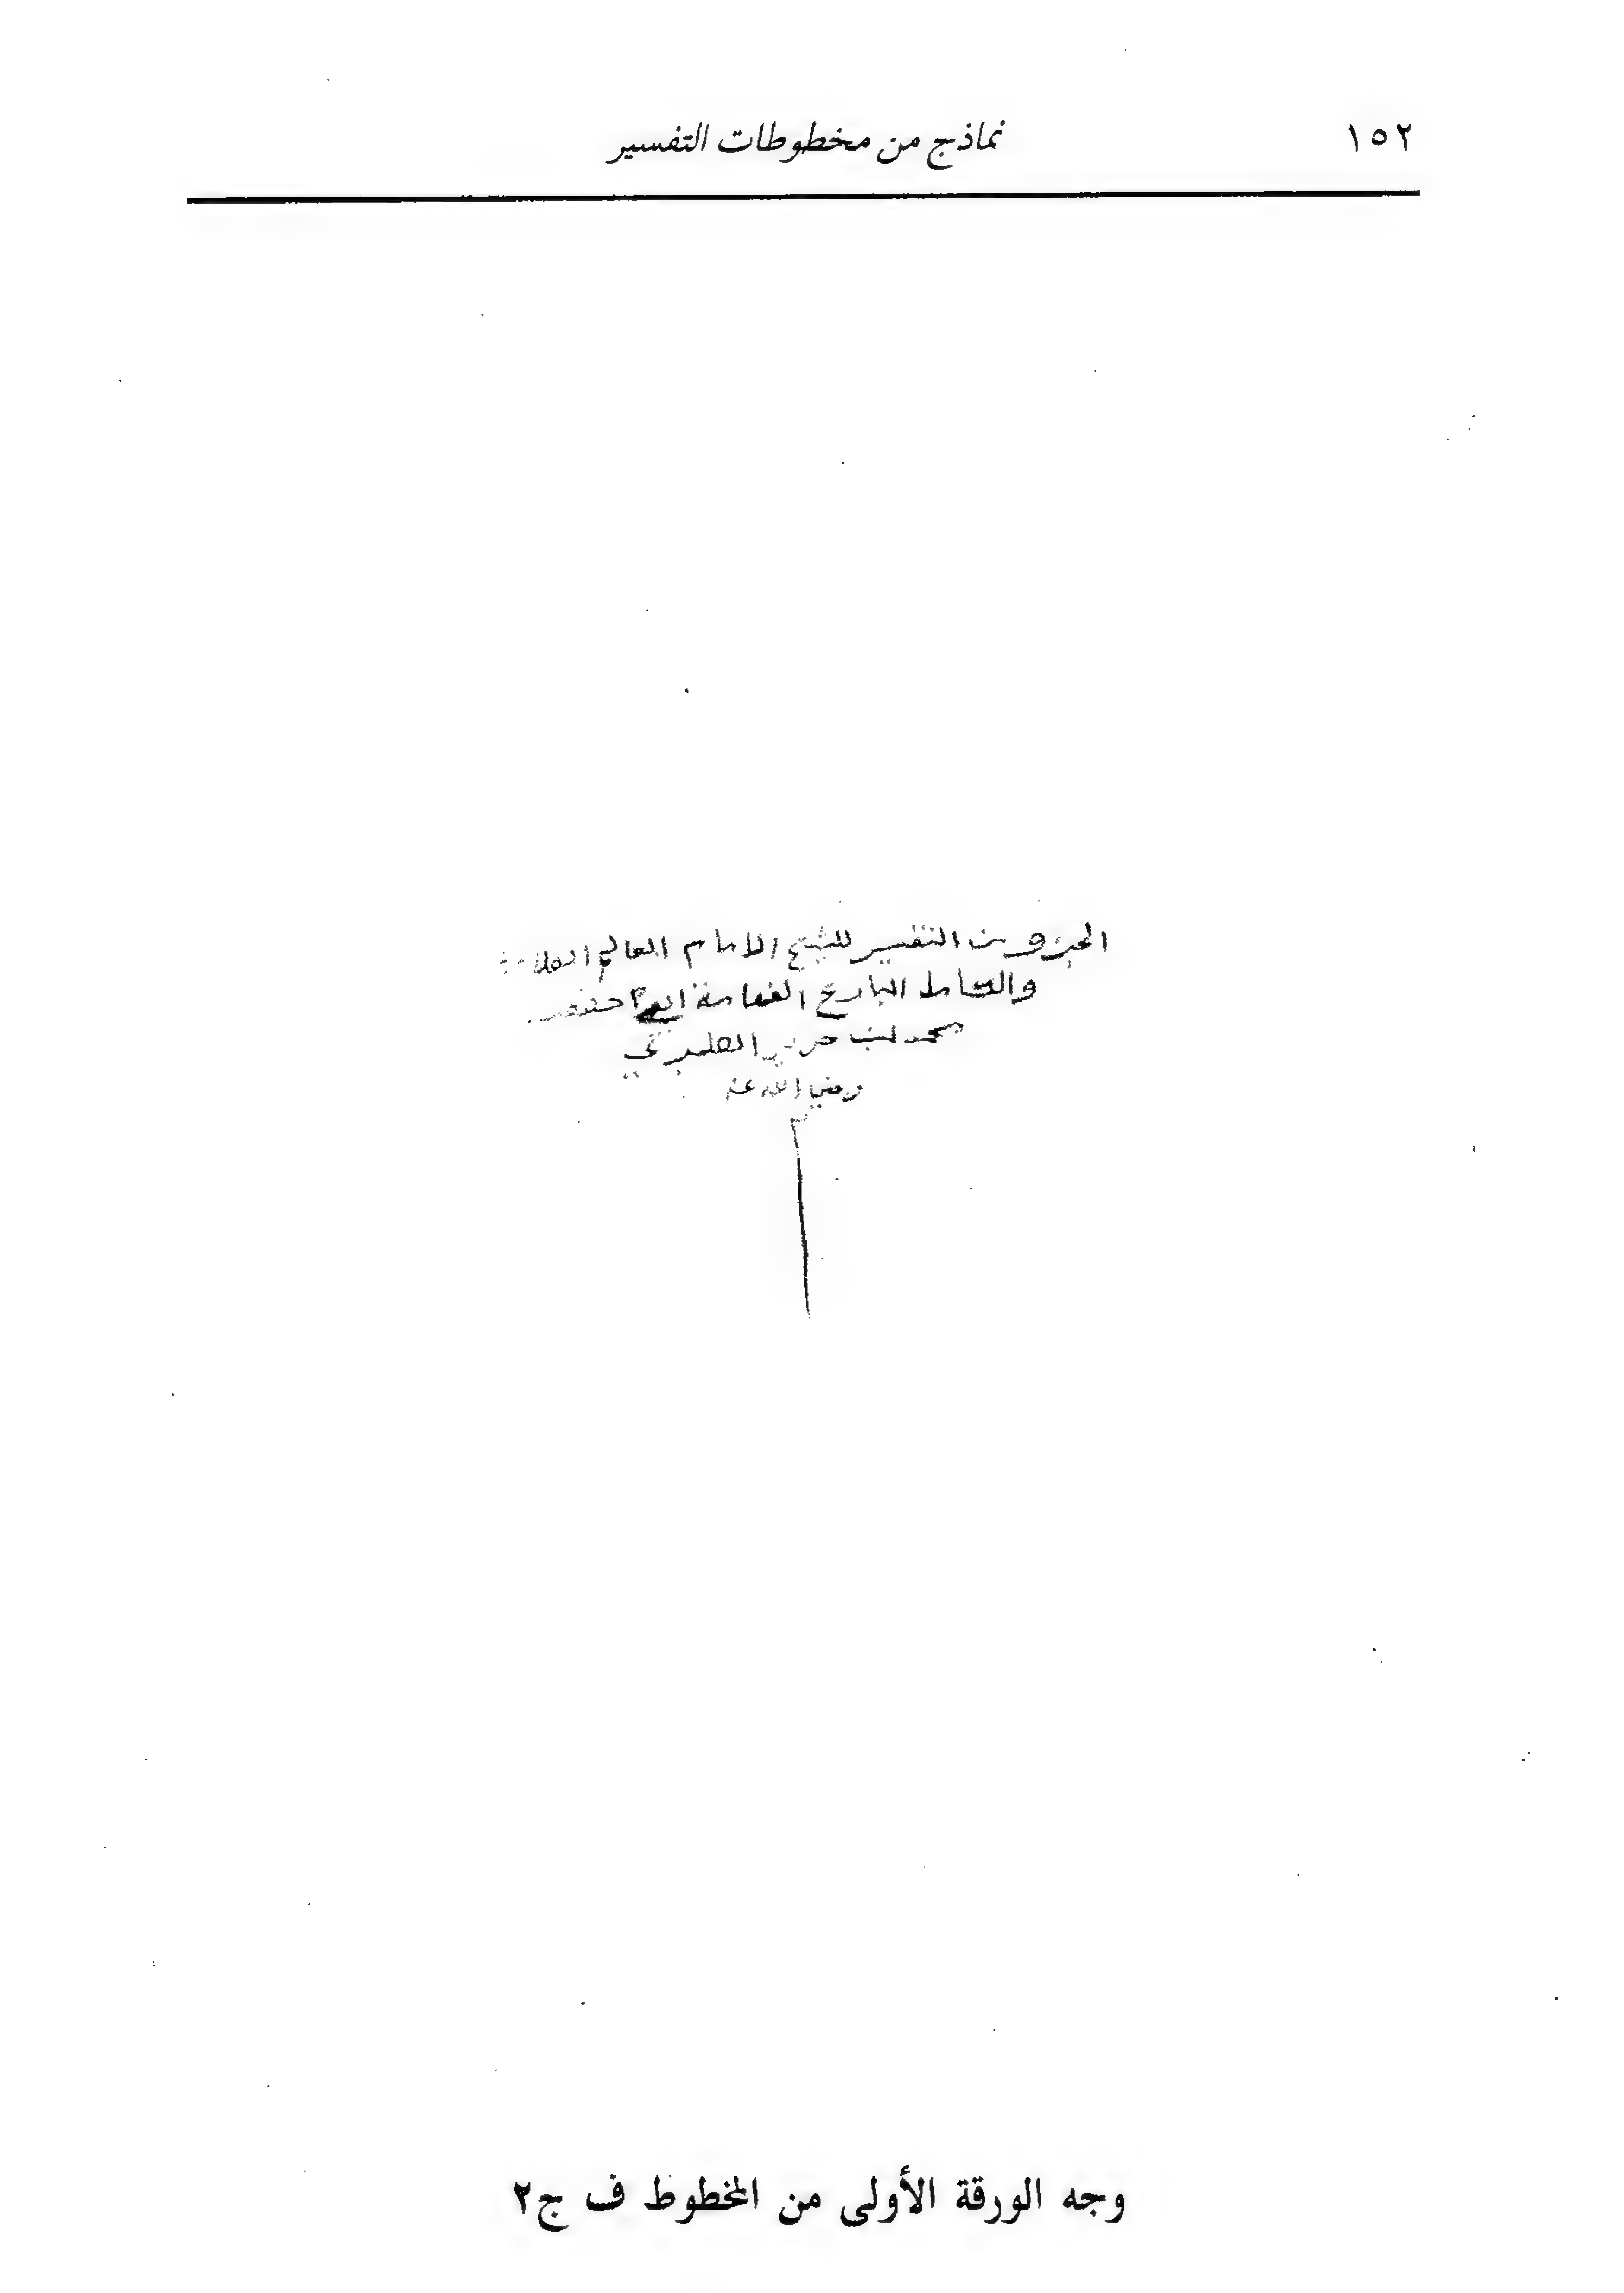 ١٥٢
نماذج من مخطوطات التفسير
الجزو من التفسير للشيخ الامام العالم العلامة
والكامل البارع الفهامة ابو جعفر
محمد بن جرير الطبري
رضي الله عنه
وجه الورقة الأولى من المخطوط ف ج٢